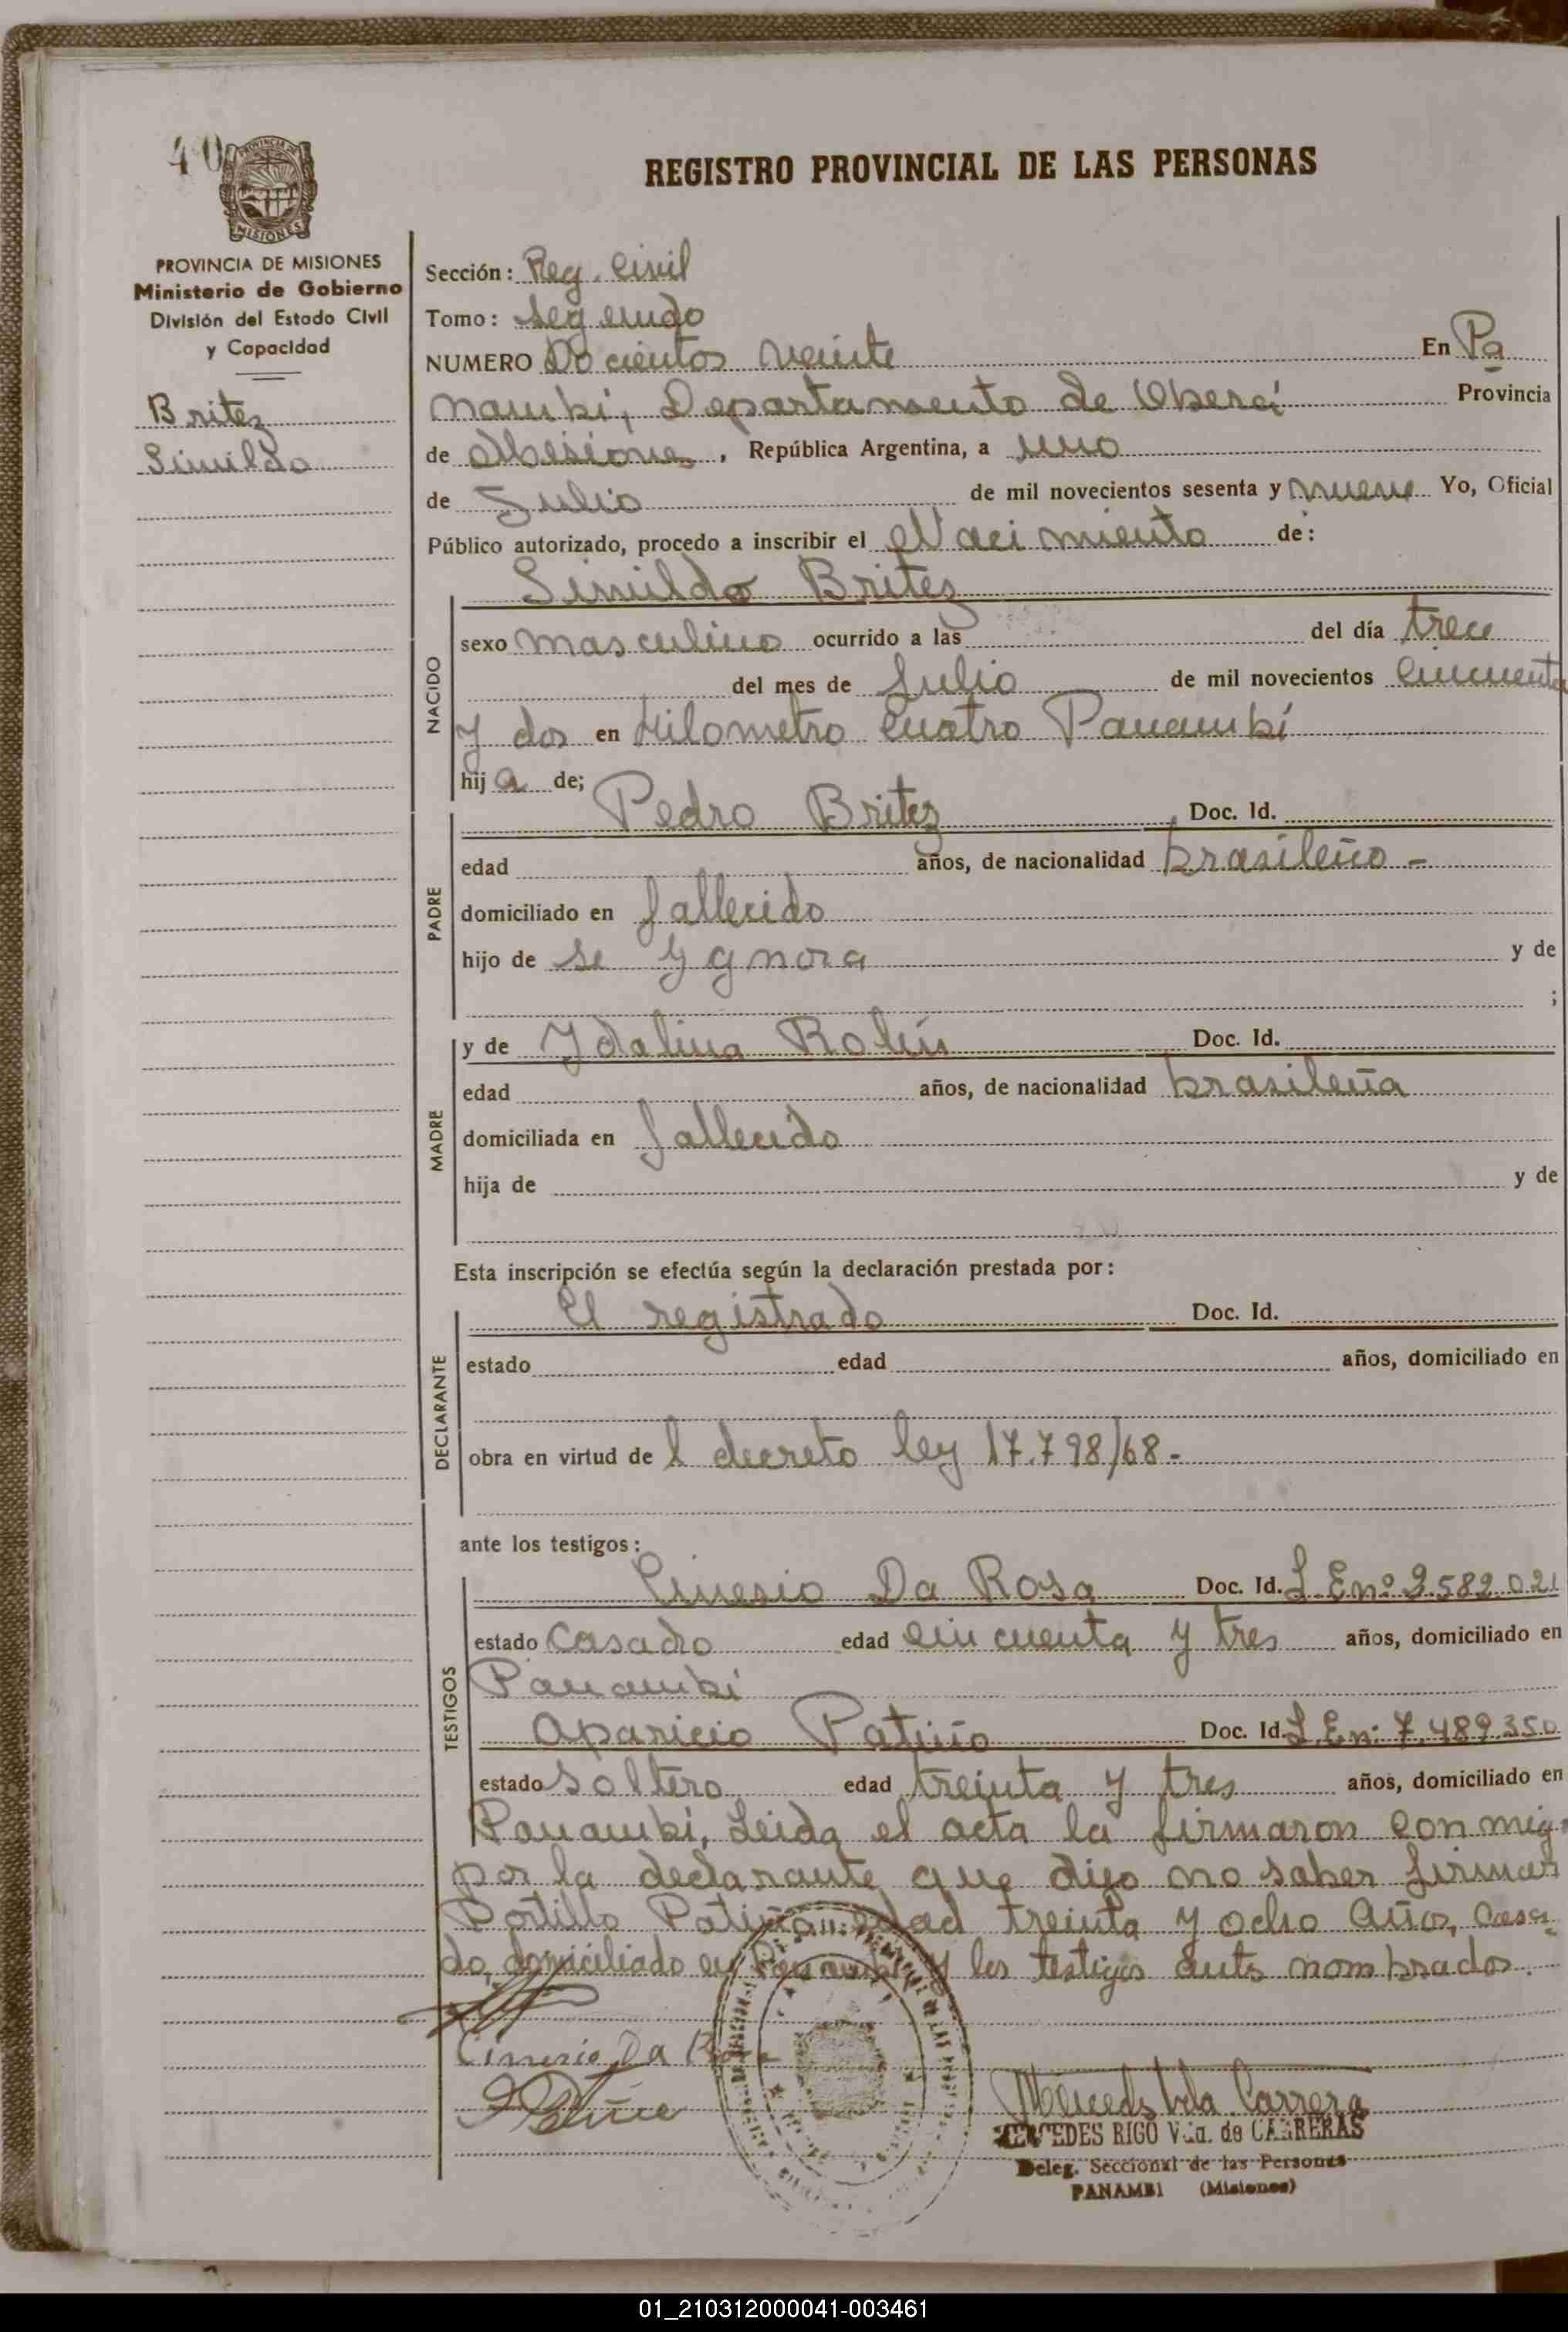 40
REGISTRO PROVINCIAL DE LAS PERSONAS
PROVINCIA DE MISIONES
Ministerio de Gobierno
División del Estado Civil
y Capacidad
Britez
Simildo
Sección: Reg. Civil
Tomo: Segundo
NUMERO Do cientos veinte En Pa
nambí, Departamento de Oberá Provincia
de Misiones, República Argentina, a uno
de Julio de mil novecientos sesenta y nueve Yo, Oficial
Público autorizado, procedo a inscribir el Naci miento de:
Simildo Britez
NACIDO
sexo masculino ocurrido a las del día trece
del mes de Julio de mil novecientos cincuenta
y dos en Kilometro Cuatro Panambí
hij a de;
PADRE
Pedro Britez Doc. Id.
edad años, de nacionalidad brasileño -
domiciliado en fallecido
hijo de se ygnora y de
;
MADRE
y de Ydalina Rolin Doc. Id.
edad años, de nacionalidad brasileña
domiciliada en fallecido
hija de y de
Esta inscripción se efectúa según la declaración prestada por:
DECLARANTE
El registrado Doc. Id.
estado edad años, domiciliado en
obra en virtud de l decreto ley 17.798/68-
ante los testigos:
TESTIGOS
Cinesio Da Rosa Doc. Id. L En° 2.582.021
estado Casado edad cin cuenta y tres años, domiciliado en
Panambí
Aparicio Patiño Doc. Id. L.En: 7.489.350
estado Soltero edad treinta y tres años, domiciliado en
Panambí, Leida el acta la firmaron conmigo
por la declarante que dijo no saber firmar
Portillo Patiño edad treinta y ocho años, casa-
do, domiciliado en Panambí y los testigos ants nombrados.
Cinesio Da Rosa
Patiño
Mercedes Vda Carrera
MERCEDES RIGO Vda. de CARRERAS
Deleg. Seccional de las Personas
PANAMBI (Misiones)
01_210312000041-003461